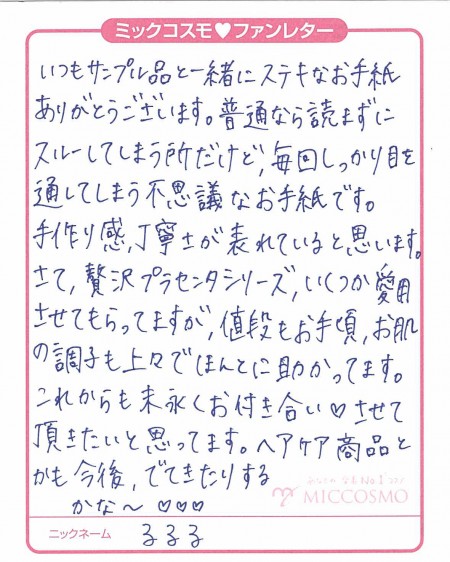 ミックコスモ♥ファンレター
いつもサンプル品と一緒にステキなお手紙
ありがとうございます。普通なら読まずに
スルーしてしまう所だけど、毎回しっかり目を
通してしまう不思議なお手紙です。
手作り感、丁寧さが表れていると思います。
さて、贅沢プラセンタシリーズ、いくつか愛用
させてもらってますが、値段もお手頃、お肌
の調子も上々でほんとに助かってます。
これからも末永くお付き合い♡させて
頂きたいと思ってます。ヘアケア商品と
かも今後、でてきたりする
かな〜 ♡♡♡
MICCOSMO
ニックネーム るるる